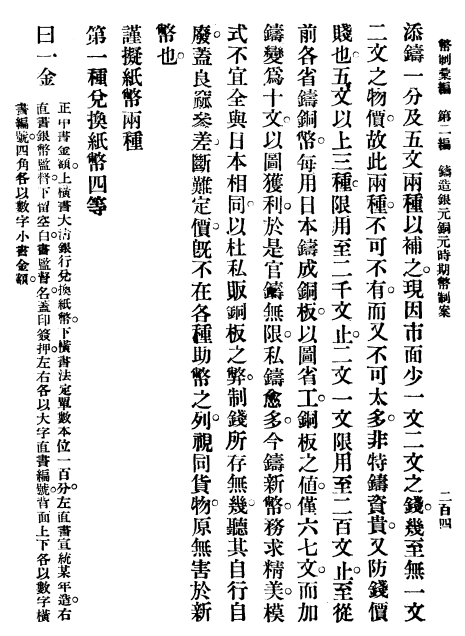 幣制彙編　第二編　鑄造銀元銅元時期幣制案　二百四
添鑄一分及五文兩種以補之。現因市面少一文二文之錢。幾至無一文
二文之物價。故此兩種。不可不有。而又不可太多。非特鑄資貴。又防錢價
賤也。五文以上三種。限用至二千文止。二文一文限用至二百文止。至從
前各省鑄銅幣。每用日本鑄成銅板。以圖省工。銅板之值。僅六七文。而加
鑄變爲十文。以圖獲利。於是官鑄無限。私鑄愈多。今鑄新幣。務求精美。模
式不宜全與日本相同。以杜私販銅板之弊。制錢所存無幾。聽其自行自
廢。蓋良窳參差。斷難定價。旣不在各種助幣之列。視同貨物。原無害於新
幣也。
謹擬紙幣兩種
第一種兌換紙幣四等
曰一金
正中書金額。上橫書大淸銀行兌換紙幣。下橫書法定單數本位一百分。左直書宣統某年造。右
直書銀幣監督。下留空白。書監督名。蓋印簽押。左右各以大字直書編號。背面上下各以數字橫
書編號。四角各以數字小書金額。